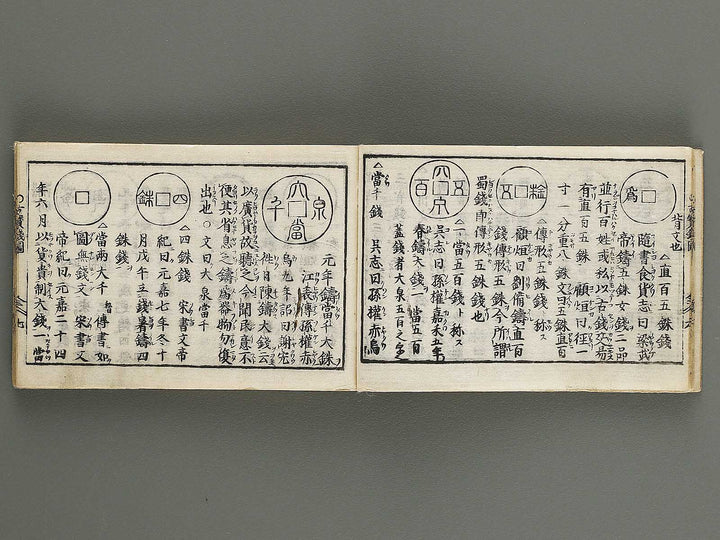 爲
背文也
△直百五銖錢
隨書食貨志曰梁武
帝鑄五銖女錢二品
並行百姓或私以古錢交易
有直百五銖 顧烜曰徑一
寸一分重八銖文曰五銖直百
五銖
△傳形五銖錢 ト 称ス
顧烜曰劉備鑄直百
錢傳形五銖今所謂
蜀錢 亦傳形五銖錢也
大泉五百
△一當五百錢 ト 称ス
吳志曰孫權嘉禾五年
春鑄大錢一當五百
蓋錢者大泉五百之

△當千錢 吳志曰孫權赤烏
大泉當千
元年鑄當千大錢
江表傳孫權赤
烏九年詔曰謝宏
往日陳鑄大錢云
以廣貨故聽之今聞民意不
便其省息之鑄爲器物勿復
出也 ○文曰大泉當千
四銖
△四銖錢 宋書文帝
紀曰元嘉七年冬十
月戊午立錢署鑄四
銖錢
△當兩大錢 傳書如
圖無錢文 宋書文
帝紀曰元嘉二十四
年六月以貨貴制大錢一當